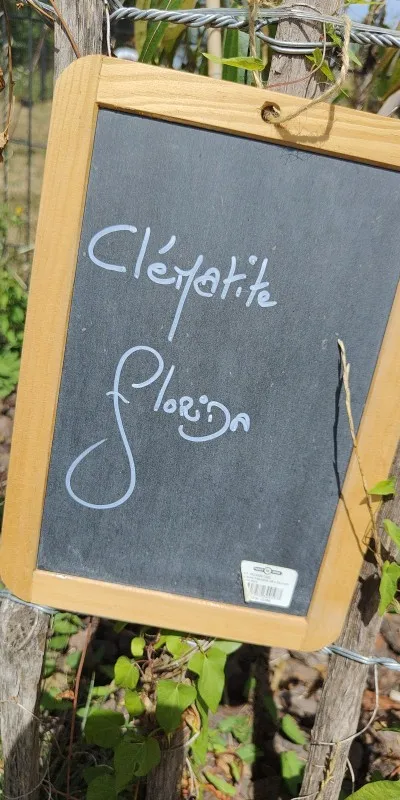 Clématite
Florida